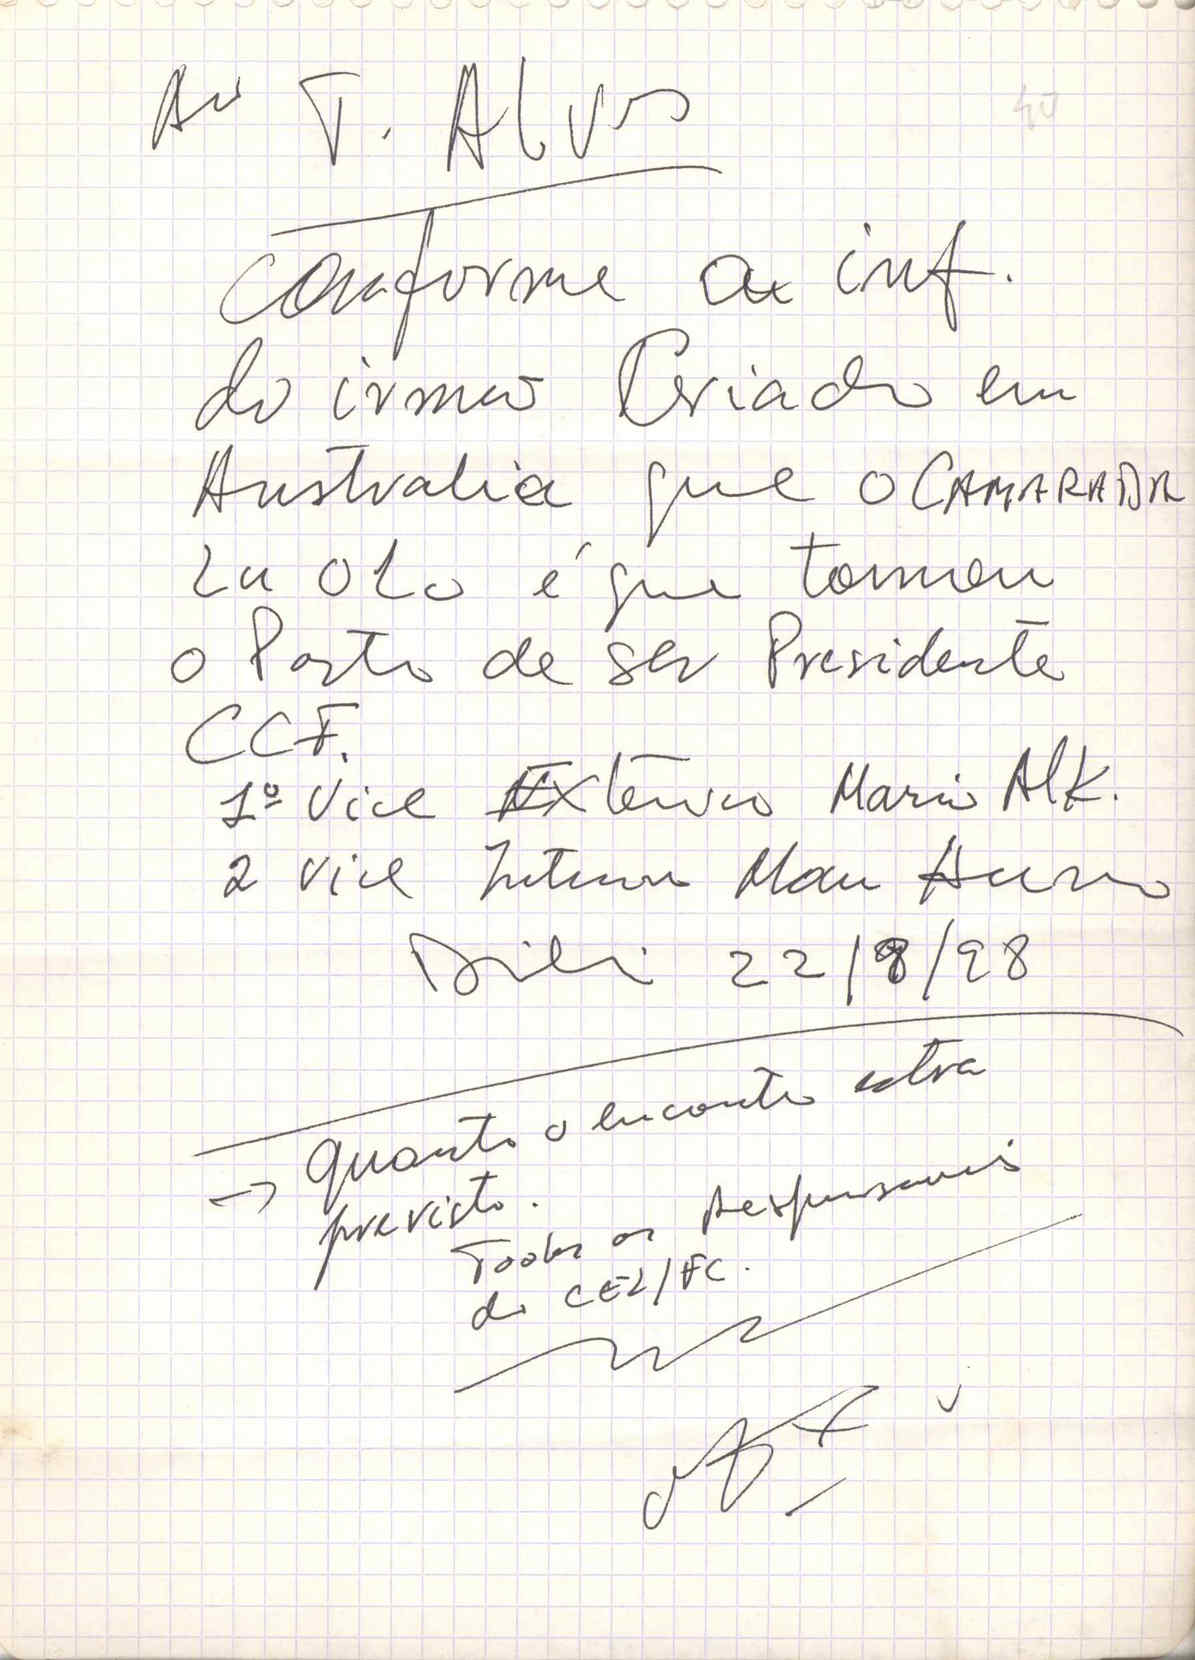 Au T. Alves
40
Conforme a inf.
do irmão Criado em
Australia que o CAMARADA
Lu OLo é que tomou
o Posto de ser Presidente
CCF.
1º Vice Externo Mario Alk.
2 Vice Interno Mau Huno
Dili 22/8/98
→ Quanto o encontro extra
previsto.
Todos os Responsaveis
do CEL/FC.